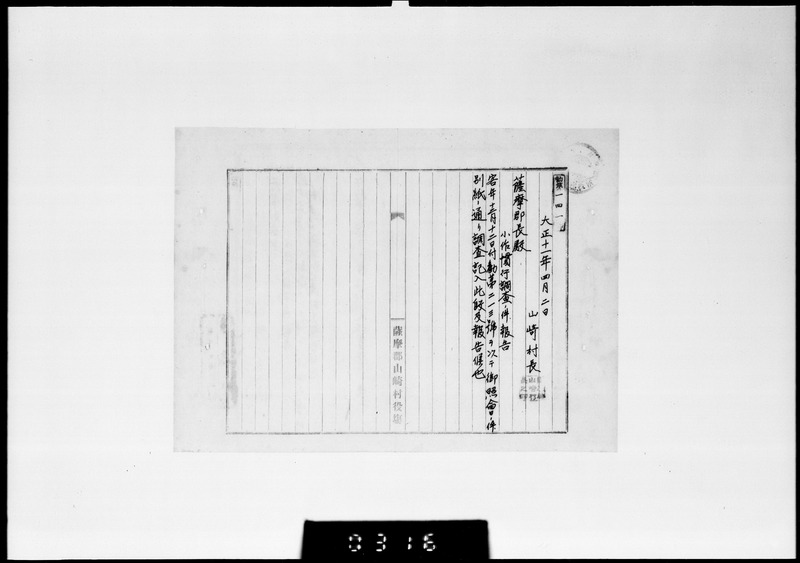 一四一
大正十一年四月二日
山崎村長
薩摩郡長殿
小作慣行調査ノ件報告
客年十二月十二日付勧第二一三號ヲ以テ御照會ノ件
別紙ノ通リ調査記入此段及報告候也
薩摩郡山崎村役塲
0316